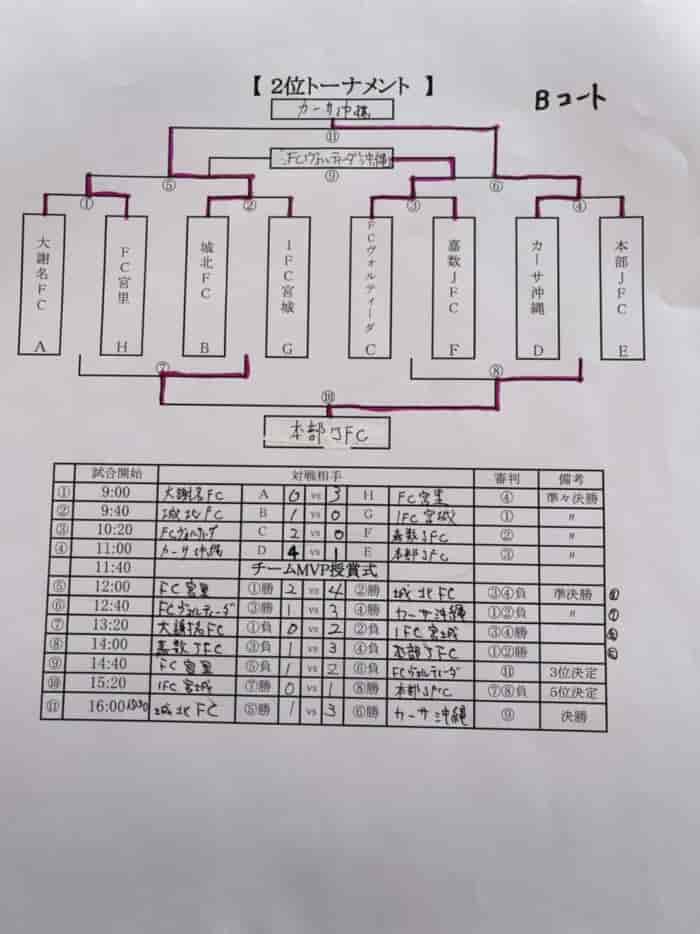 【 2位トーナメント 】
Bコート
カーサ沖縄
⑪
FCヴォルティーダ沖縄
⑤ ⑨ ⑥
① ② ③ ④
大謝名FC A
FC宮里 H
城北FC B
IFC宮城 G
FCヴォルティーダ C
嘉数JFC F
カーサ沖縄 D
本部JFC E
⑦ ⑧
⑩
本部JFC
試合開始 対戦相手 審判 備考
① 9:00 大謝名FC A 0 vs 3 H FC宮里 ④ 準々決勝
② 9:40 城北FC B 1 vs 0 G IFC宮城 ① 〃
③ 10:20 FCヴォルティーダ C 2 vs 0 F 嘉数JFC ② 〃
④ 11:00 カーサ沖縄 D 4 vs 1 E 本部JFC ③ 〃
11:40 チームMVP授賞式
⑤ 12:00 FC宮里 ①勝 2 vs 4 ②勝 城北FC ③④負 準決勝
⑥ 12:40 FCヴォルティーダ ③勝 1 vs 3 ④勝 カーサ沖縄 ①②負 〃
⑦ 13:20 大謝名FC ①負 0 vs 2 ②負 IFC宮城 ③④勝
⑧ 14:00 嘉数JFC ③負 1 vs 3 ④負 本部JFC ①②勝
⑨ 14:40 FC宮里 ⑤負 1 vs 2 ⑥負 FCヴォルティーダ ⑪ 3位決定
⑩ 15:20 IFC宮城 ⑦勝 0 vs 1 ⑧勝 本部JFC ⑦⑧負 5位決定
⑪ 16:00 城北FC ⑤勝 1 vs 3 ⑥勝 カーサ沖縄 ⑨ 決勝